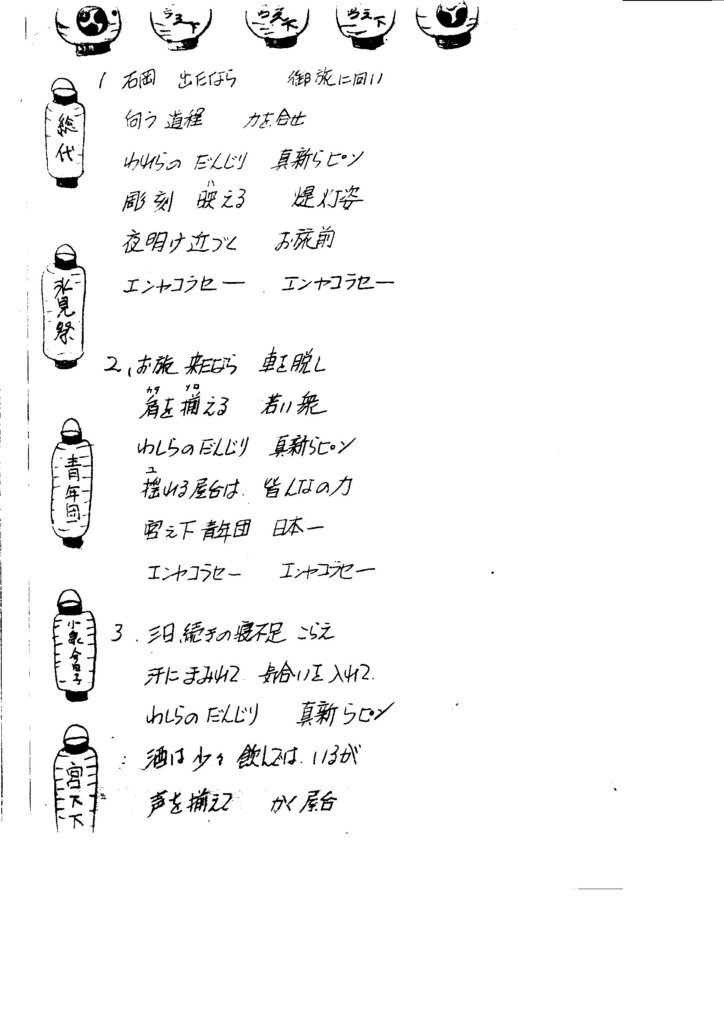 宮之下
宮之下
1 石岡 出たなら 御旅に向い
向う道程 力を合せ
われらの だんじり 真新らピン
彫刻 映える 提灯姿
ハ
夜明け近づく お旅前
エンヤコラセー エンヤコラセー
2、お旅 来たなら 車を脱し
カタ ソロ
肩を揃える 若い衆
わしらのだんじり 真新らピン
ユ
揺れる屋台は 皆んなの力
宮之下青年団 日本一
エンヤコラセー エンヤコラセー
3 三日続きの寝不足 こらえ
汗にまみれて 気合いを入れて
わしらの だんじり 真新らピン
酒は少々 飲んでは いるが
声を揃えて かく屋台
総代
氷見祭
青年団
小泉今日子
宮之下